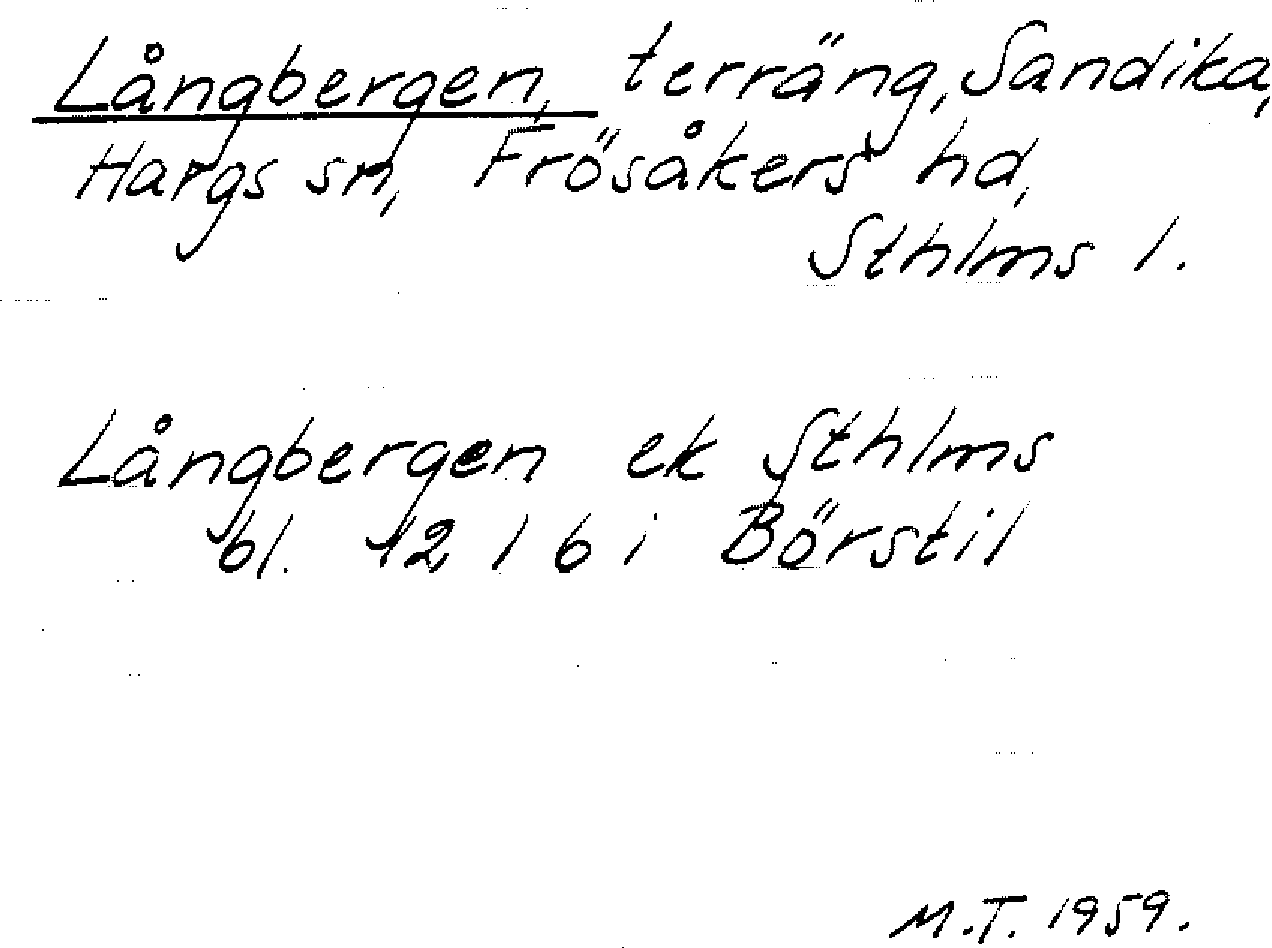 Långbergen, terräng, Sandika,
Hargs sn, Frösåkers hd,
Sthlms l.
Långbergen ek Sthlms
bl. 12 l 6 i Börstil
M.T. 1959.